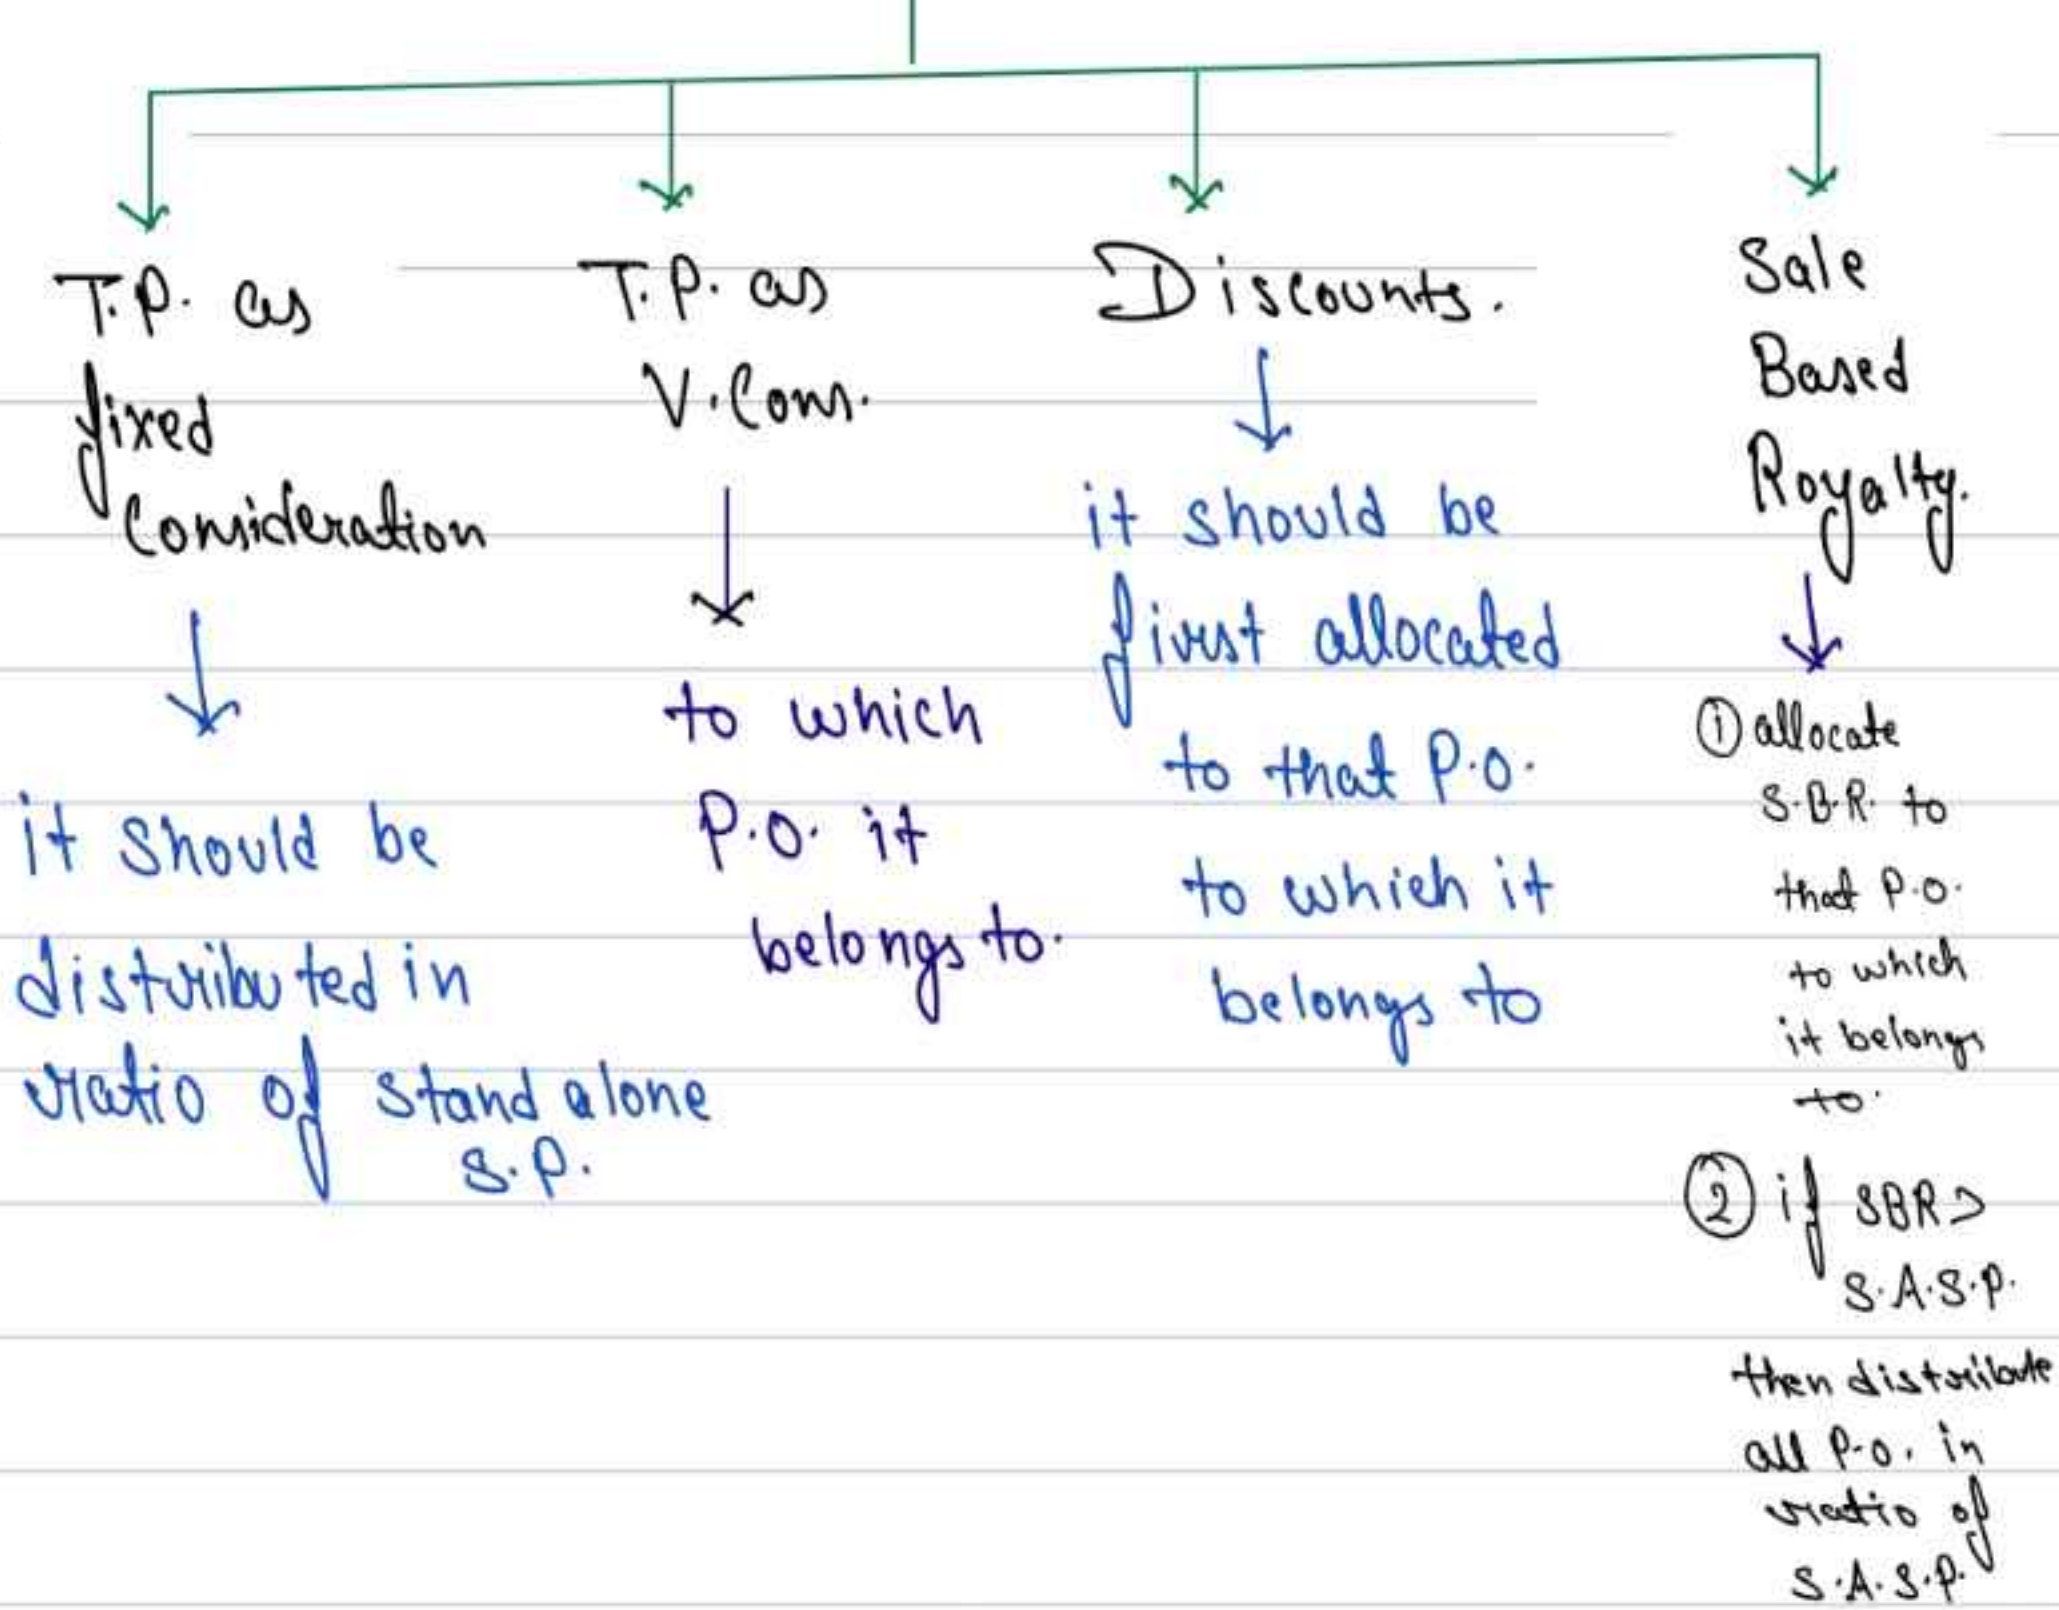 T.P. as
fixed
Consideration
it should be
distributed in
ratio of stand alone
S.P.
T.P. as
V.Cons.
to which
P.O. it
belongs to.
Discounts.
it should be
first allocated
to that P.O.
to which it
belongs to
Sale
Based
Royalty.
① allocate
S.B.R. to
that P.O.
to which
it belongs
to.
② if SBR >
S.A.S.P.
then distribute
all P.O. in
ratio of
S.A.S.P.